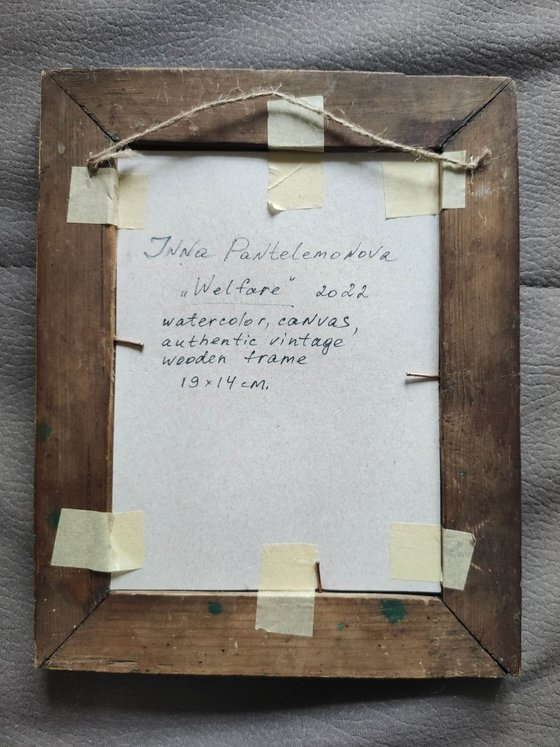 Inna Pantelemonova
„Welfare" 2022
watercolor, canvas,
authentic vintage
wooden frame
19×14 cm.